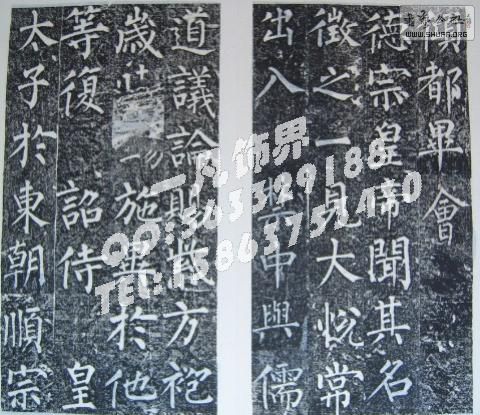 傾都畢會
德宗皇帝聞其名
徵之一見大悅常
出入禁中與儒
道議論賜紫方袍
歲施異於他
等復 詔侍 皇
太子於東朝順宗
一凡饰界
QQ:563329188
TEL:15863751440
WWW.SHUFA.ORG